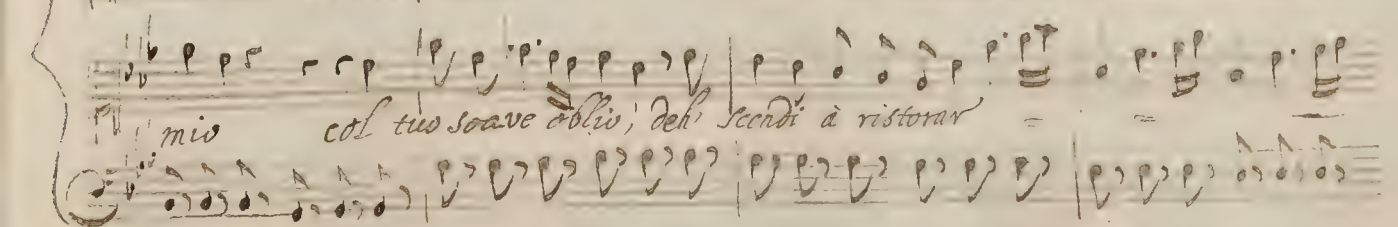 mio col tuo soave oblio, deh' scendi à ristorar